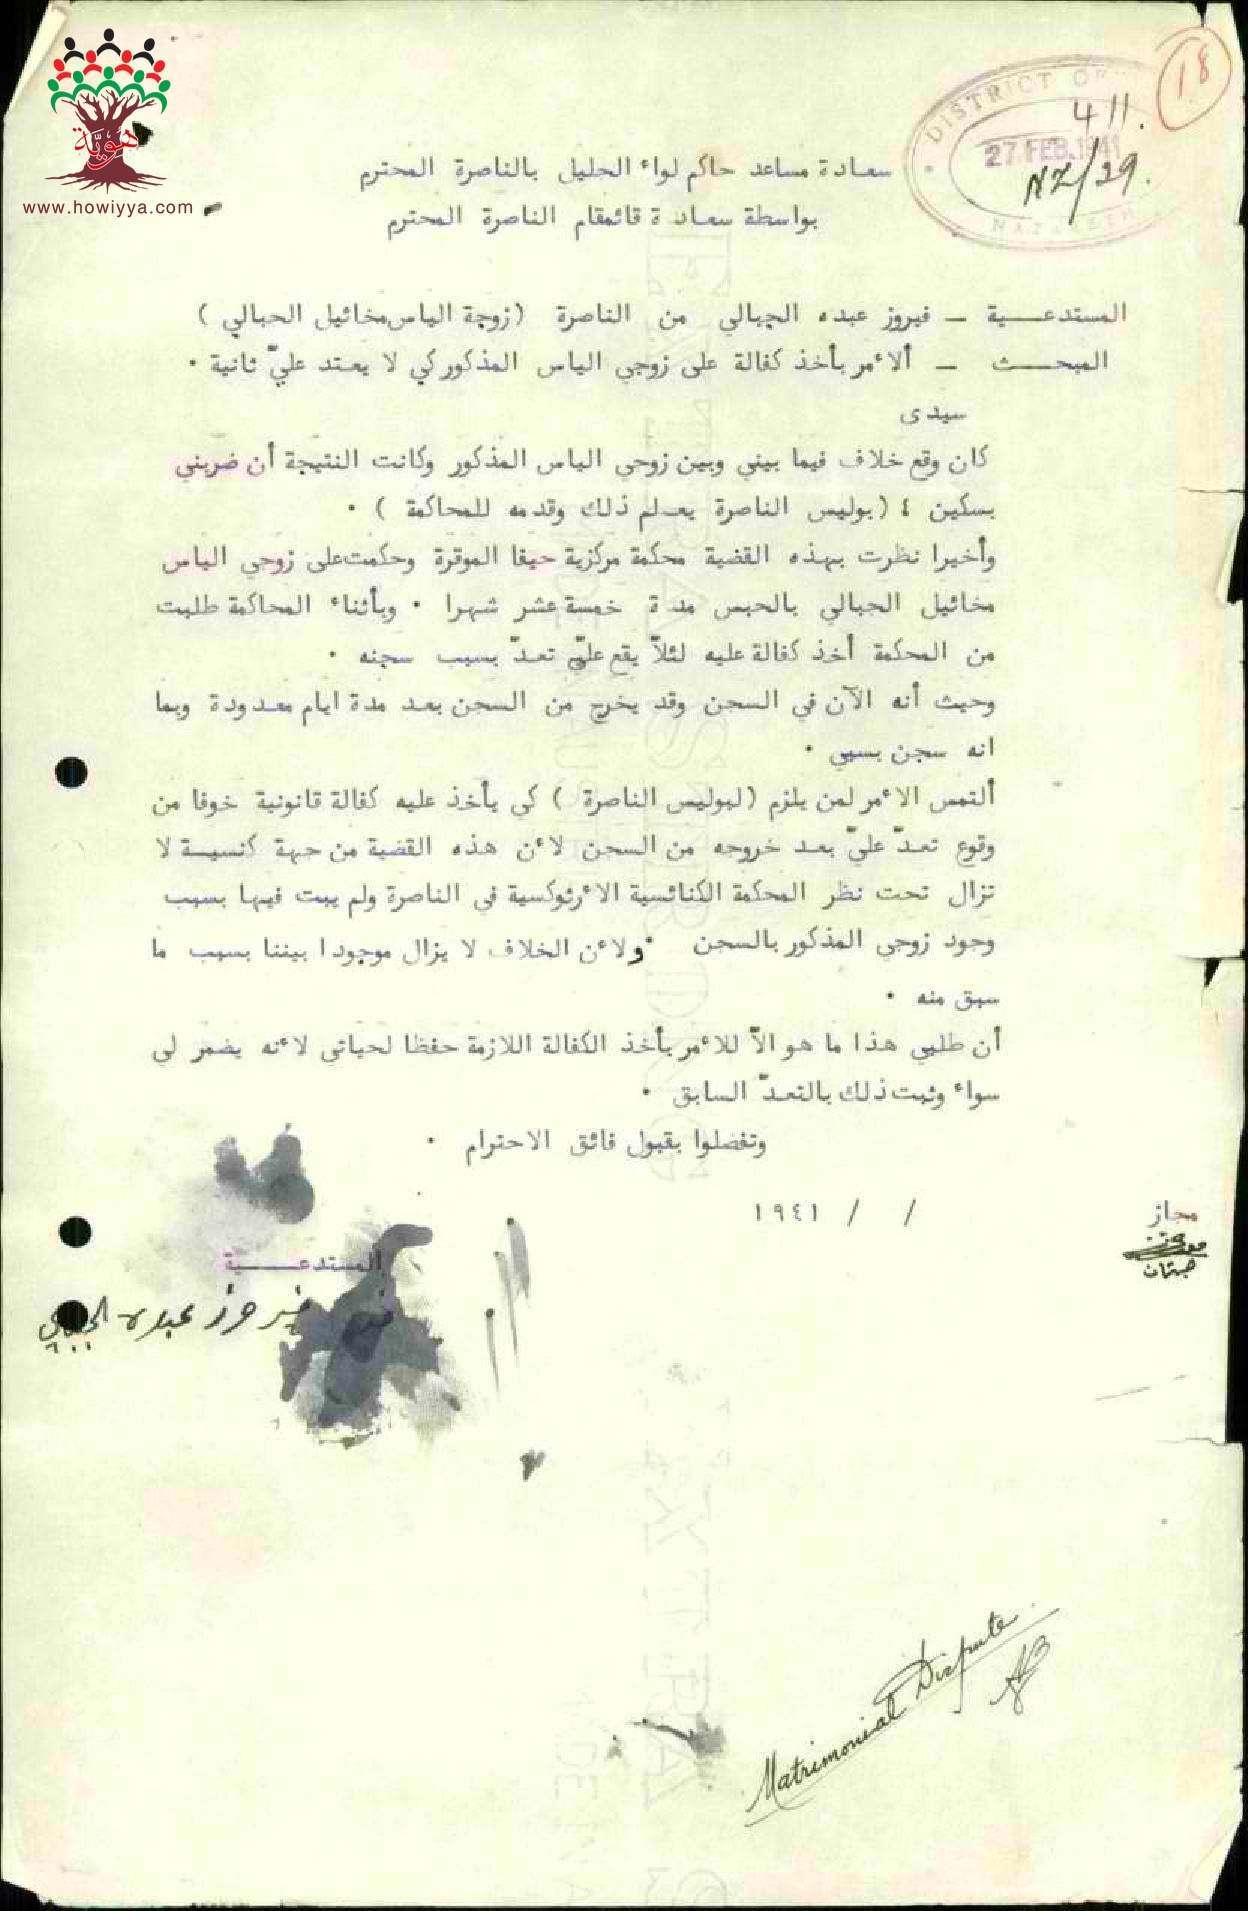 18
DISTRICT OF
411.
27.FEB.1941
NZ/39.
NAZARETH
هويّة
www.howiyya.com
سعادة مساعد حاكم لواء الجليل بالناصرة المحترم
بواسطة سعادة قائمقام الناصرة المحترم
المستدعـــية ـ فيروز عبده الجبالي من الناصرة (زوجة الياس مخائيل الجبالي )
المبحـــث ـ ألاءمر بأخذ كفالة على زوجي الياس المذكور كي لا يعتد عليّ ثانية .
سيدى
كان وقع خلاف فيما بيني وبين زوجي الياس المذكور وكانت النتيجة أن ضربني
بسكين ٤ (بوليس الناصرة يعلم ذلك وقدمه للمحاكمة ) .
وأخيرا نظرت بهذه القضية محكمة مركزية حيفا الموقرة وحكمت على زوجي الياس
مخائيل الجبالي بالحبس مدة خمسة عشر شهرا . وبأثناء المحاكمة طلبت
من المحكمة أخذ كفالة عليه لئلاّ يقع عليّ تعدّ بسبب سجنه .
وحيث أنه الآن في السجن وقد يخرج من السجن بعد مدة ايام معدودة وبما
انه سجن بسببي .
ألتمس الاءمر لمن يلزم (لبوليس الناصرة ) كي يأخذ عليه كفالة قانونية خوفا من
وقوع تعدّ عليّ بعد خروجه من السجن لاءن هذه القضية من جهة كنسية لا
تزال تحت نظر المحكمة الكنائسية الاءرثوكسية في الناصرة ولم يبت فيها بسبب
وجود زوجي المذكور بالسجن . ولاءن الخلاف لا يزال موجودا بيننا بسبب ما
سبق منه .
أن طلبي هذا ما هو الاّ للاءمر بأخذ الكفالة اللازمة حفظا لحياتي لاءنه يضمر لي
سواء وثبت ذلك بالتعدّ السابق .
وتفضلوا بقبول فائق الاحترام .
/ / ١٩٤١
مجاز
المستدعـــية
فيروز عبده الجبالي
Matrimonial Dispute